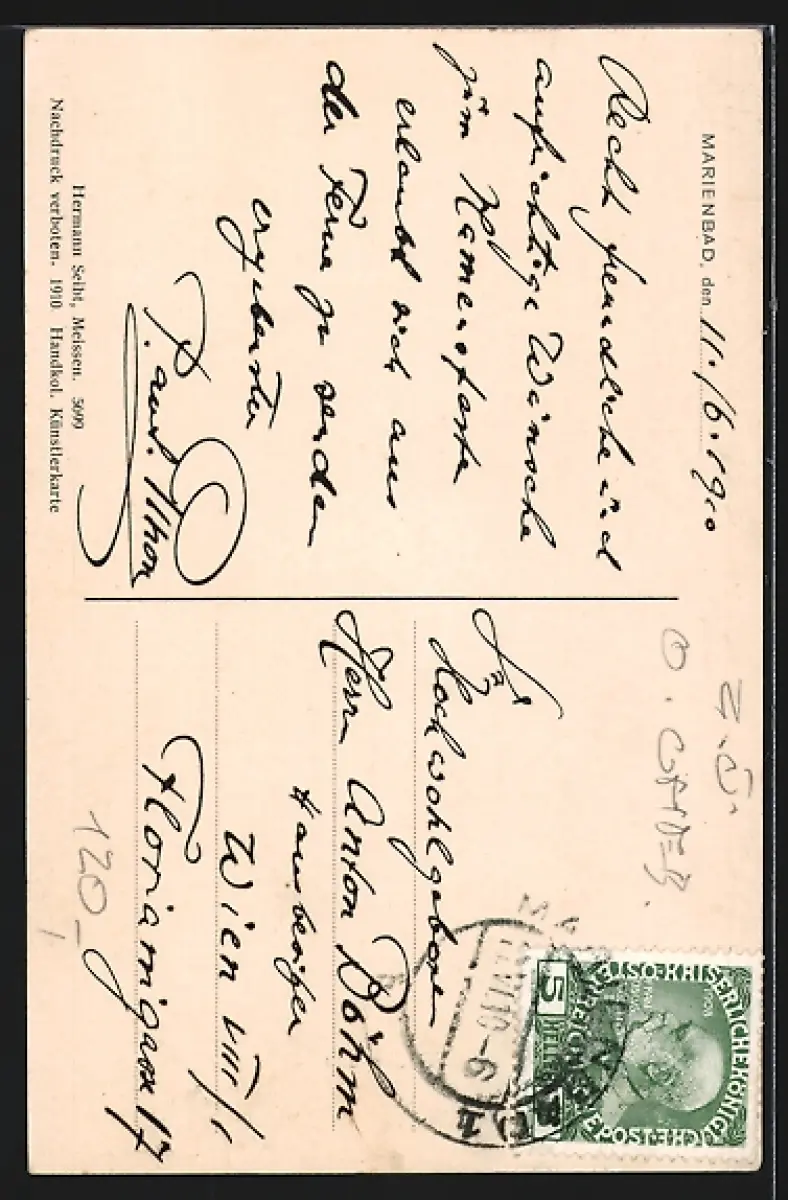 MARIENBAD, den 11./6. 1910
Recht freundliche und
aufrichtige Wünsche
zum Namensfeste
erlaubt sich aus
der Ferne zu senden
ergebenster
P. Ant.
Hermann Seibt, Meissen. 5099
Nachdruck verboten. 1910 Handkol. Künstlerkarte
Hochwohlgeboren
Herrn Anton Böhm
Hausbesitzer
Wien VIII/1
Floriamigasse 17
120
KAISERLICHE KÖNIGLICHE
ÖSTERREICHISCHE POST
5 HELLER
1848 1908